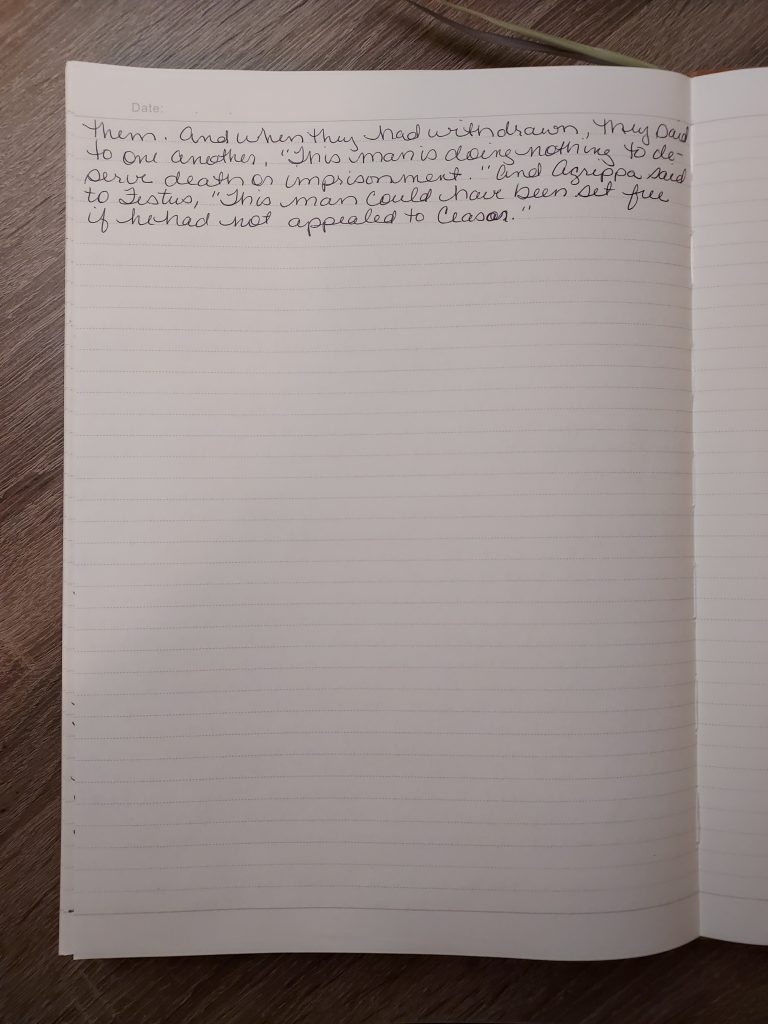 Date:
them. And when they had withdrawn, they said
to one another, "This man is doing nothing to de-
serve death or imprisonment." And Agrippa said
to Festus, "This man could have been set free
if he had not appealed to Ceasar."